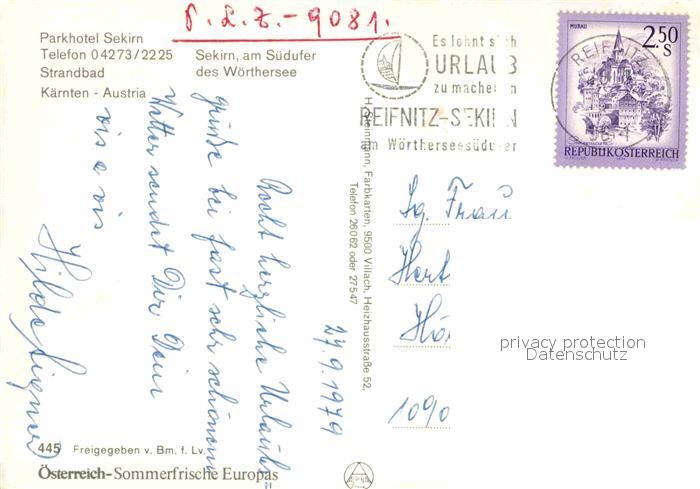 P.L.Z.-9081.
Parkhotel Sekirn
Telefon 04273/2225
Strandbad
Kärnten - Austria
Sekirn, am Südufer
des Wörthersee
Es lohnt sich
URLAUB
zu machen in
REIFNITZ-SEKIRN
am Wörtherseesüdufer
MURAU
2.50
S
REIFNITZ
REPUBLIK ÖSTERREICH
27.9.1979
Recht herzliche Urlaubs=
grüße bei fast sehr schönem
Wetter sendet Dir Dein
vis a vis
Hilde
H. Steinmann, Farbkarten, 9500 Villach, Heizhausstraße 52,
Telefon 26062 oder 27547
Sg. Frau
Hert
Hö
1090
privacy protection
Datenschutz
445 Freigegeben v. Bm. f. Lv.
Österreich-Sommerfrische Europas